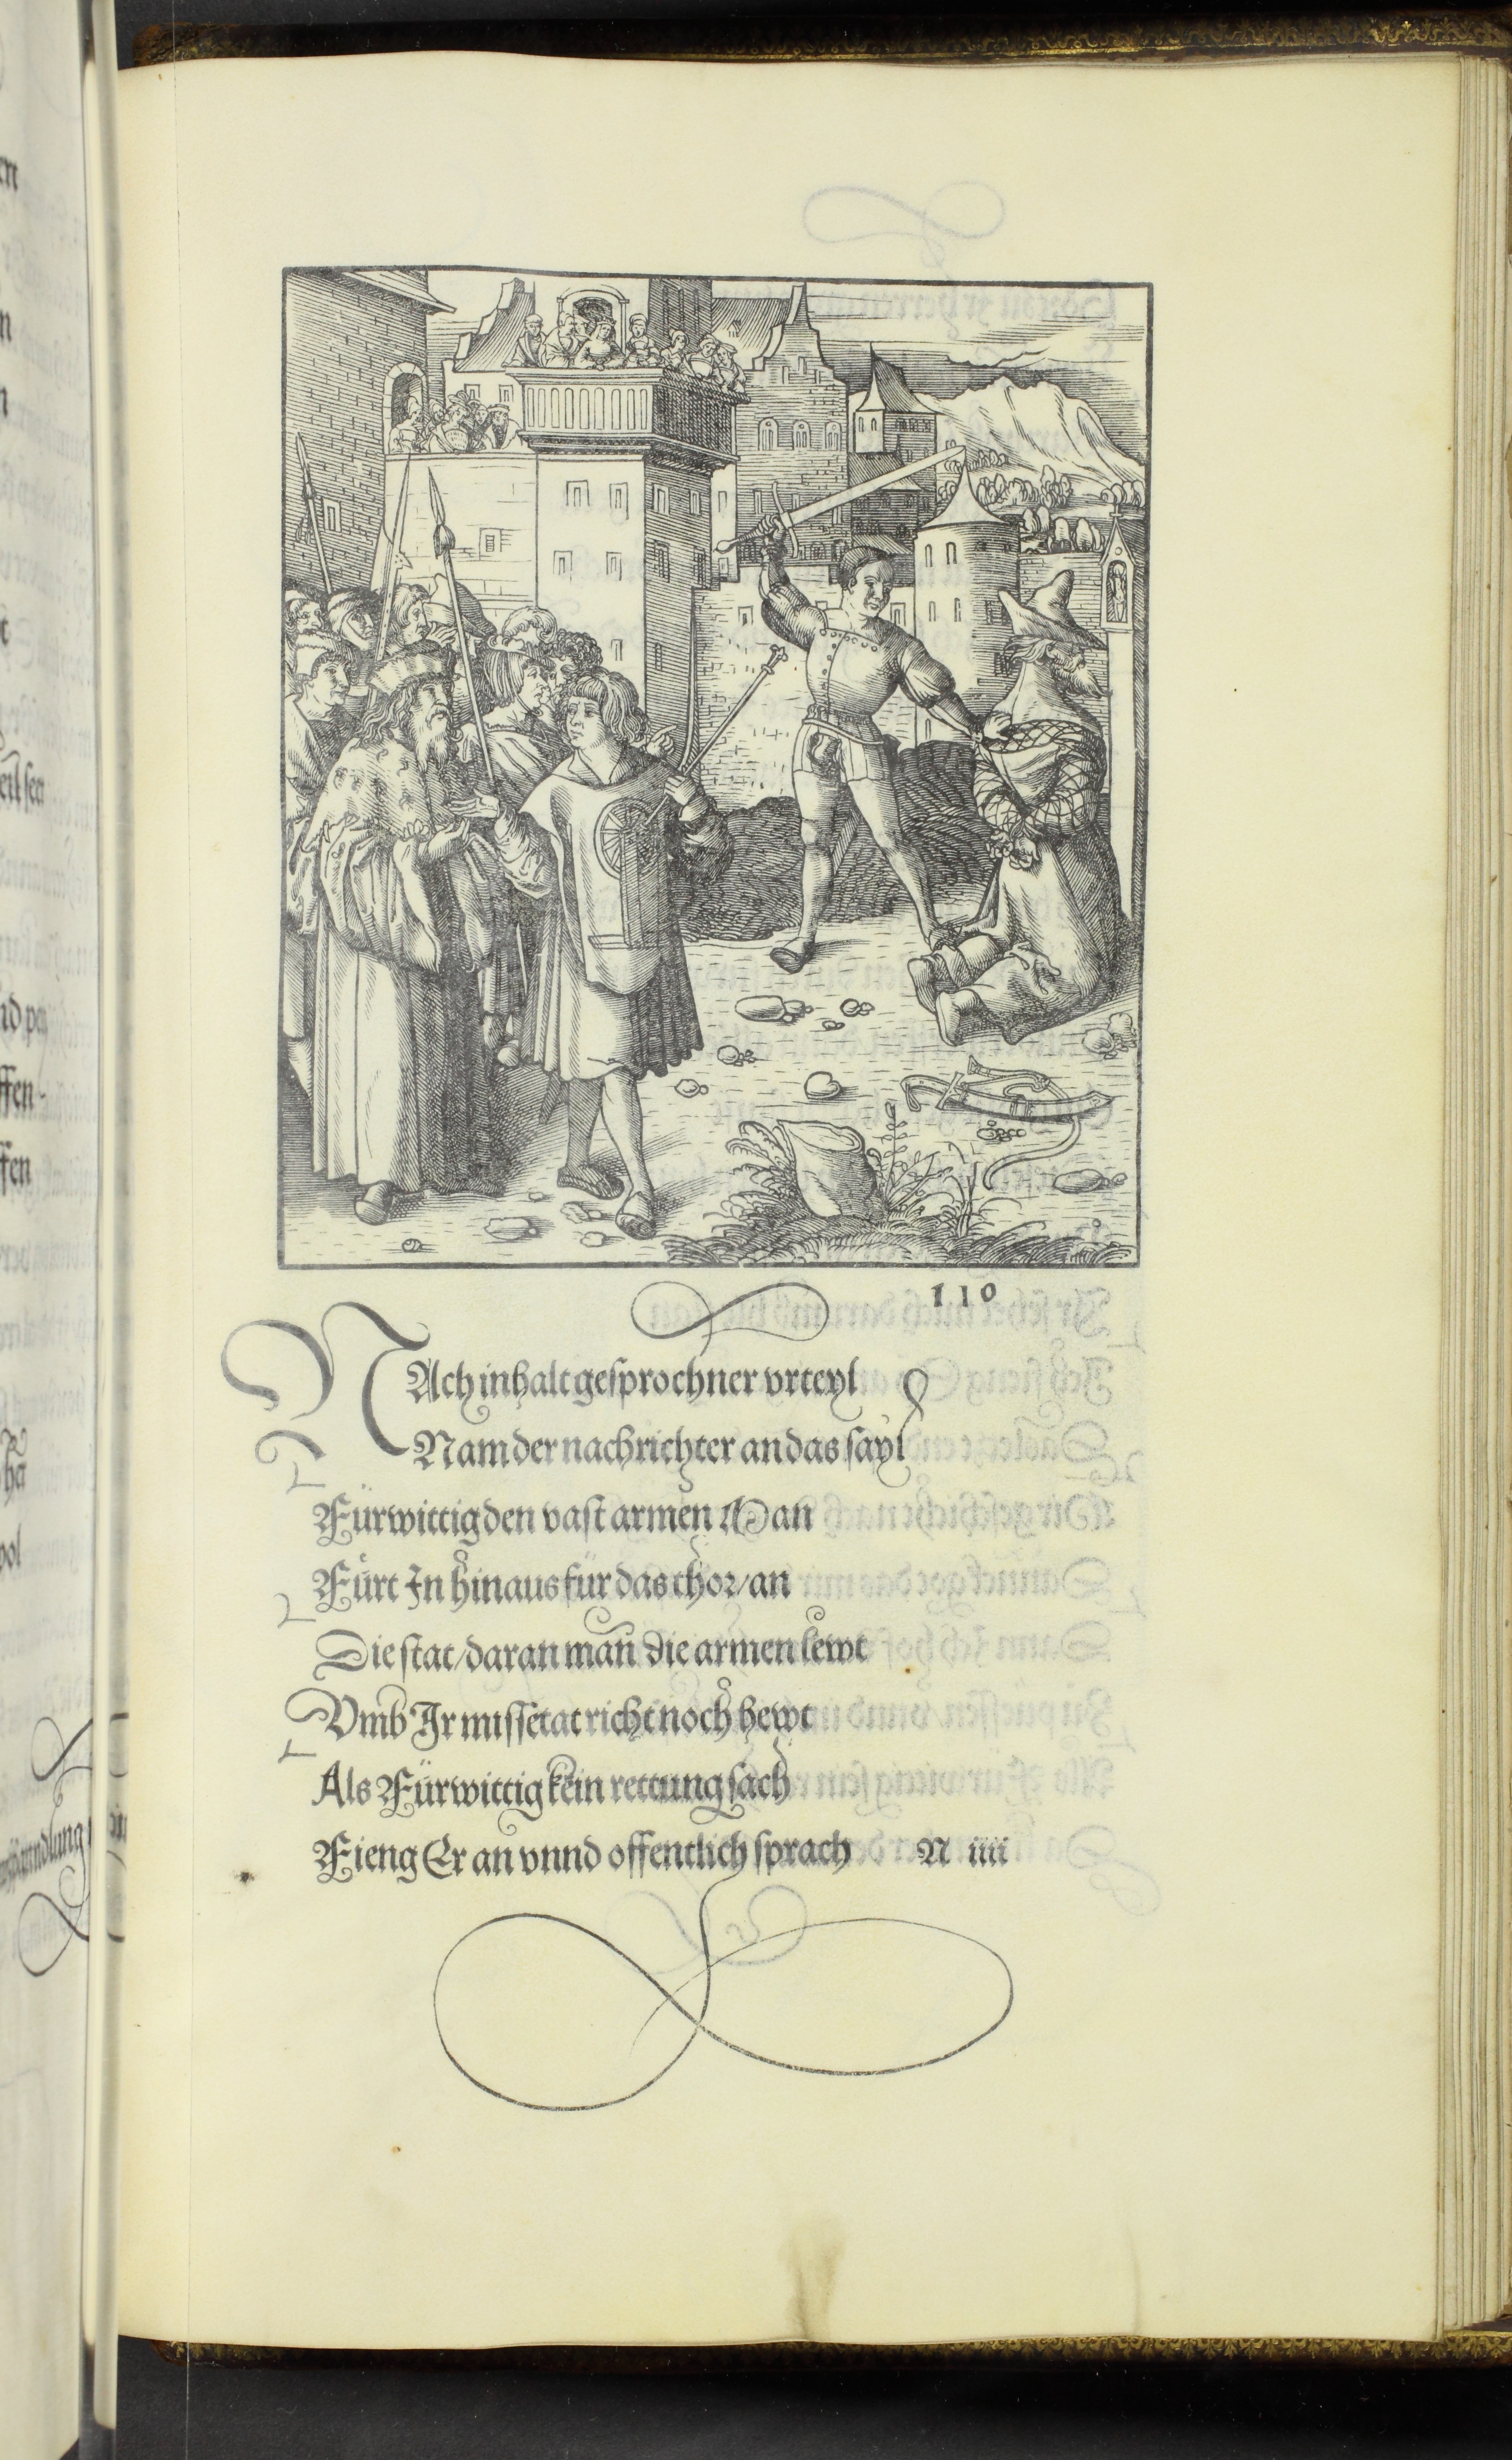 110
NAch inhalt gesprochner vrteyl
Nam der nachrichter an das sayl
Fürwittig den vast armen Man
Fürt In hinaus für das thor/an
Die stat/daran man die armen lewt
Vmb Ir missetat richt noch hewt
Als Fürwittig kein rettung sach
Fieng Er an vnnd offentlich sprach N iiii